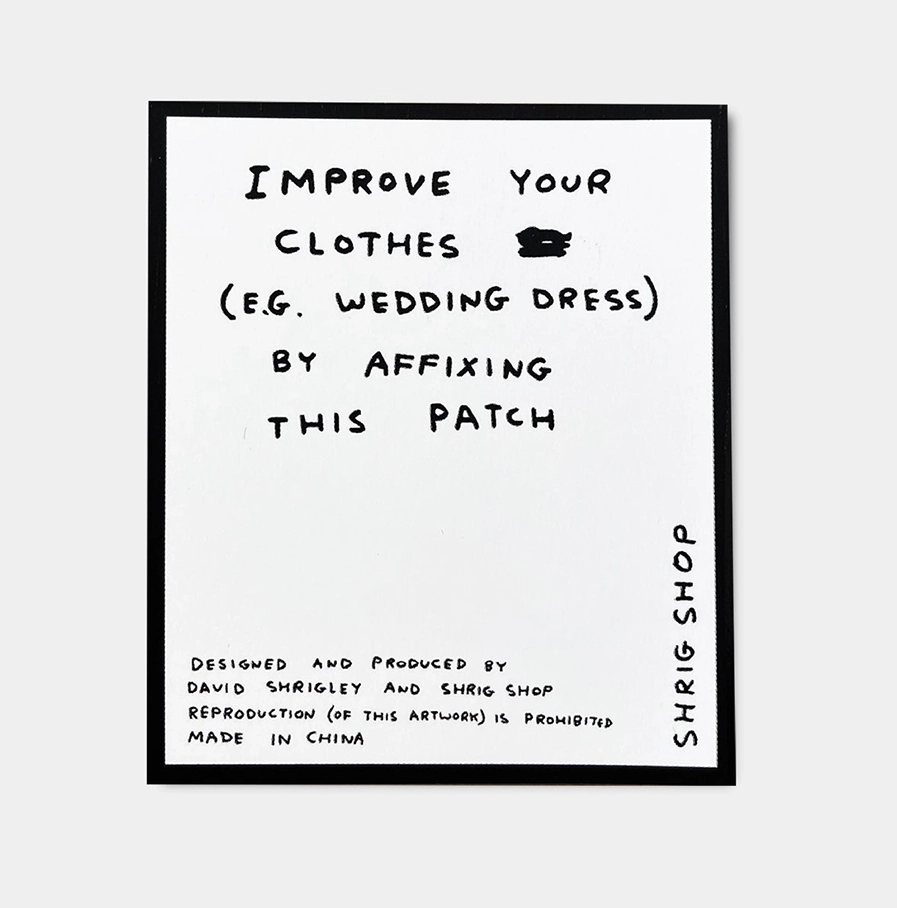 IMPROVE YOUR
CLOTHES
(E.G. WEDDING DRESS)
BY AFFIXING
THIS PATCH
SHRIG SHOP
DESIGNED AND PRODUCED BY
DAVID SHRIGLEY AND SHRIG SHOP
REPRODUCTION (OF THIS ARTWORK) IS PROHIBITED
MADE IN CHINA